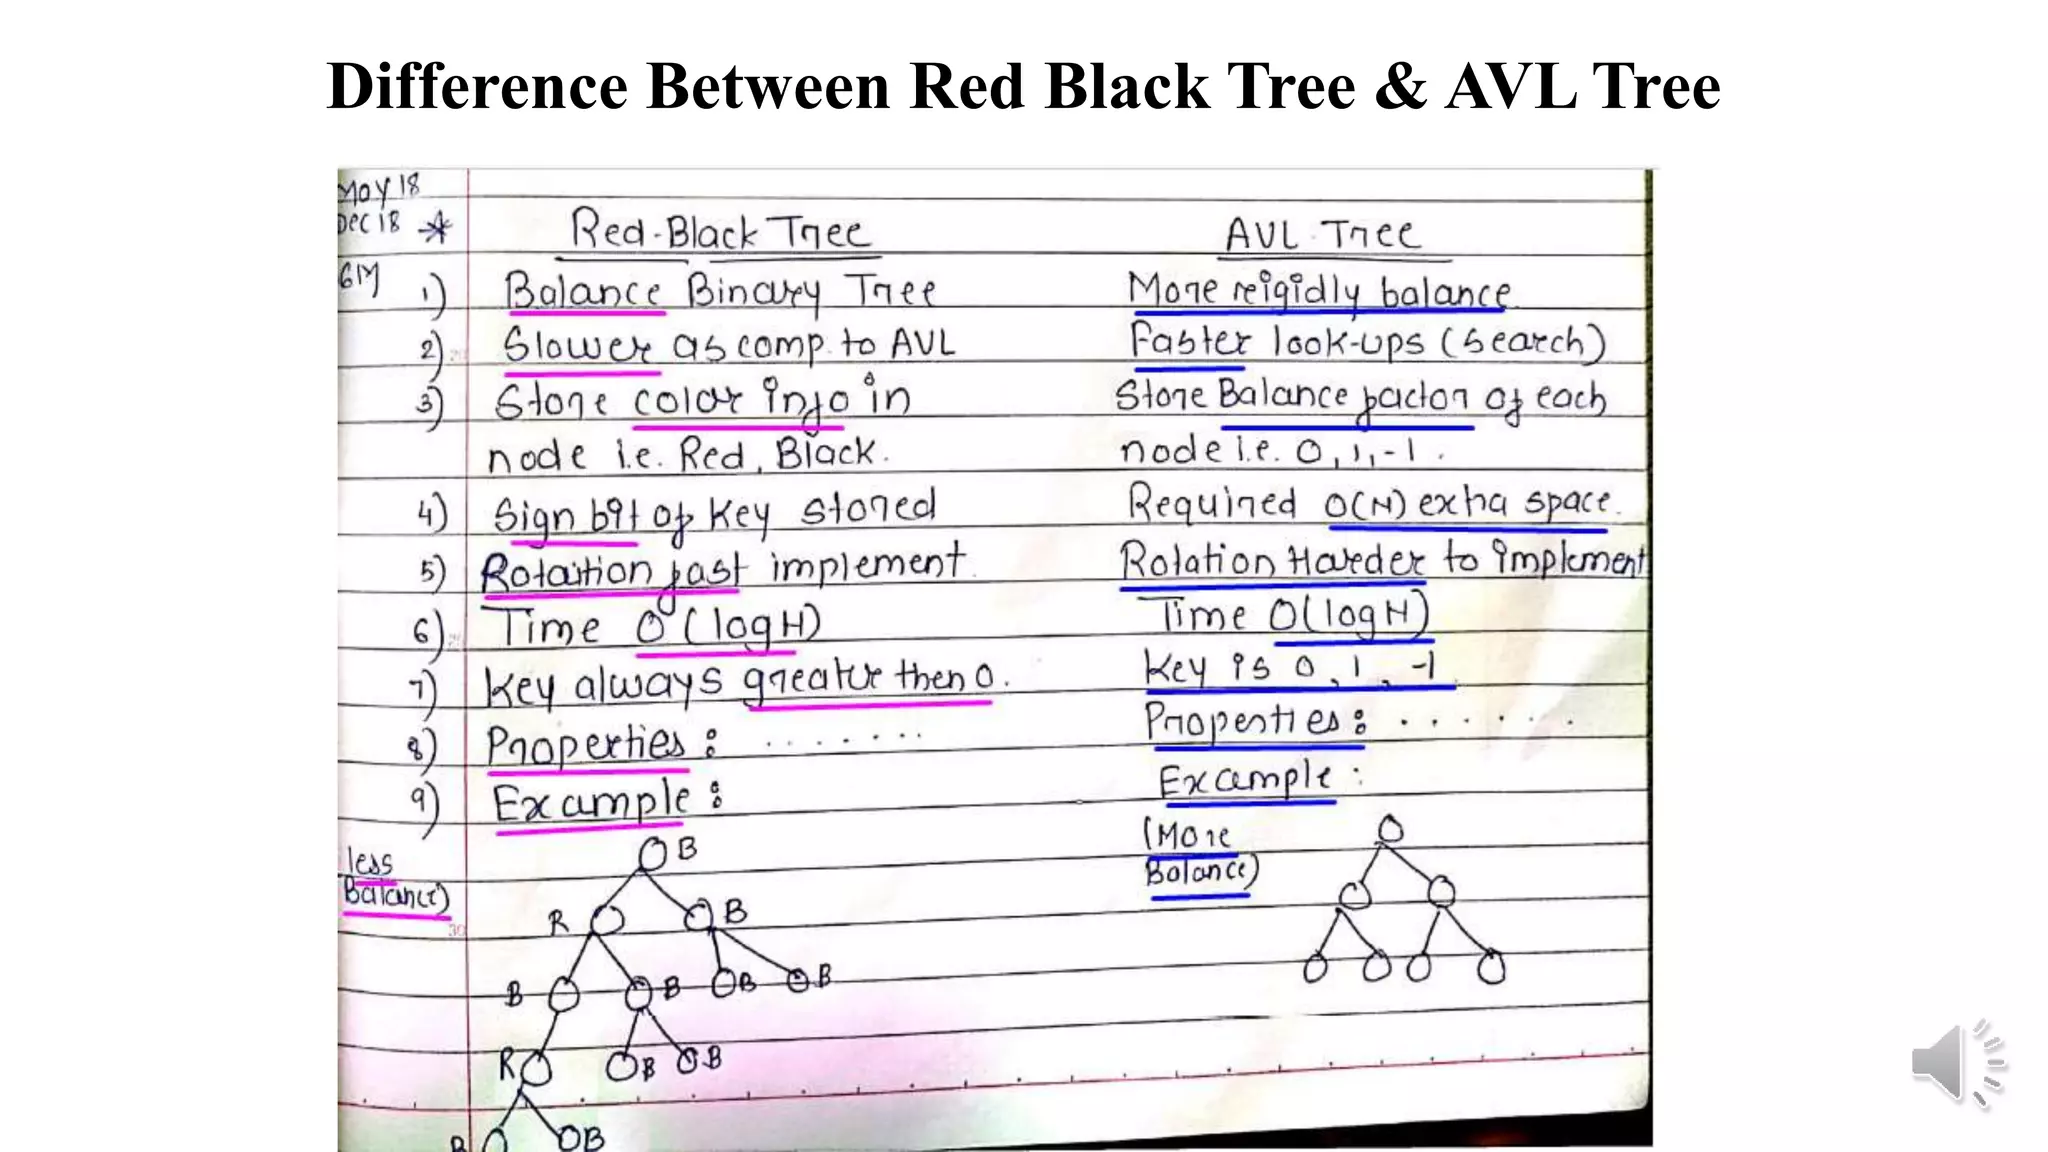 Difference Between Red Black Tree & AVL Tree
May 18
Dec 18
Red-Black Tree AVL Tree
6M
1) Balance Binary Tree More reigidly balance.
2) Slower as comp. to AVL Faster look-ups (search)
3) Store color info in Store Balance factor of each
node i.e. Red, Black. node i.e. 0, 1, -1.
4) Sign bit of key stored Required O(N) extra space.
5) Rotation fast implement. Rotation Harder to implement
6) Time O(logN) Time O(logN)
7) Key always greater then 0. Key is 0, 1, -1.
8) Properties: ....... Properties: ......
9) Example: Example:
less
Balance)
(More
Balance)
B
R B
B B B B
R B B
B B
30